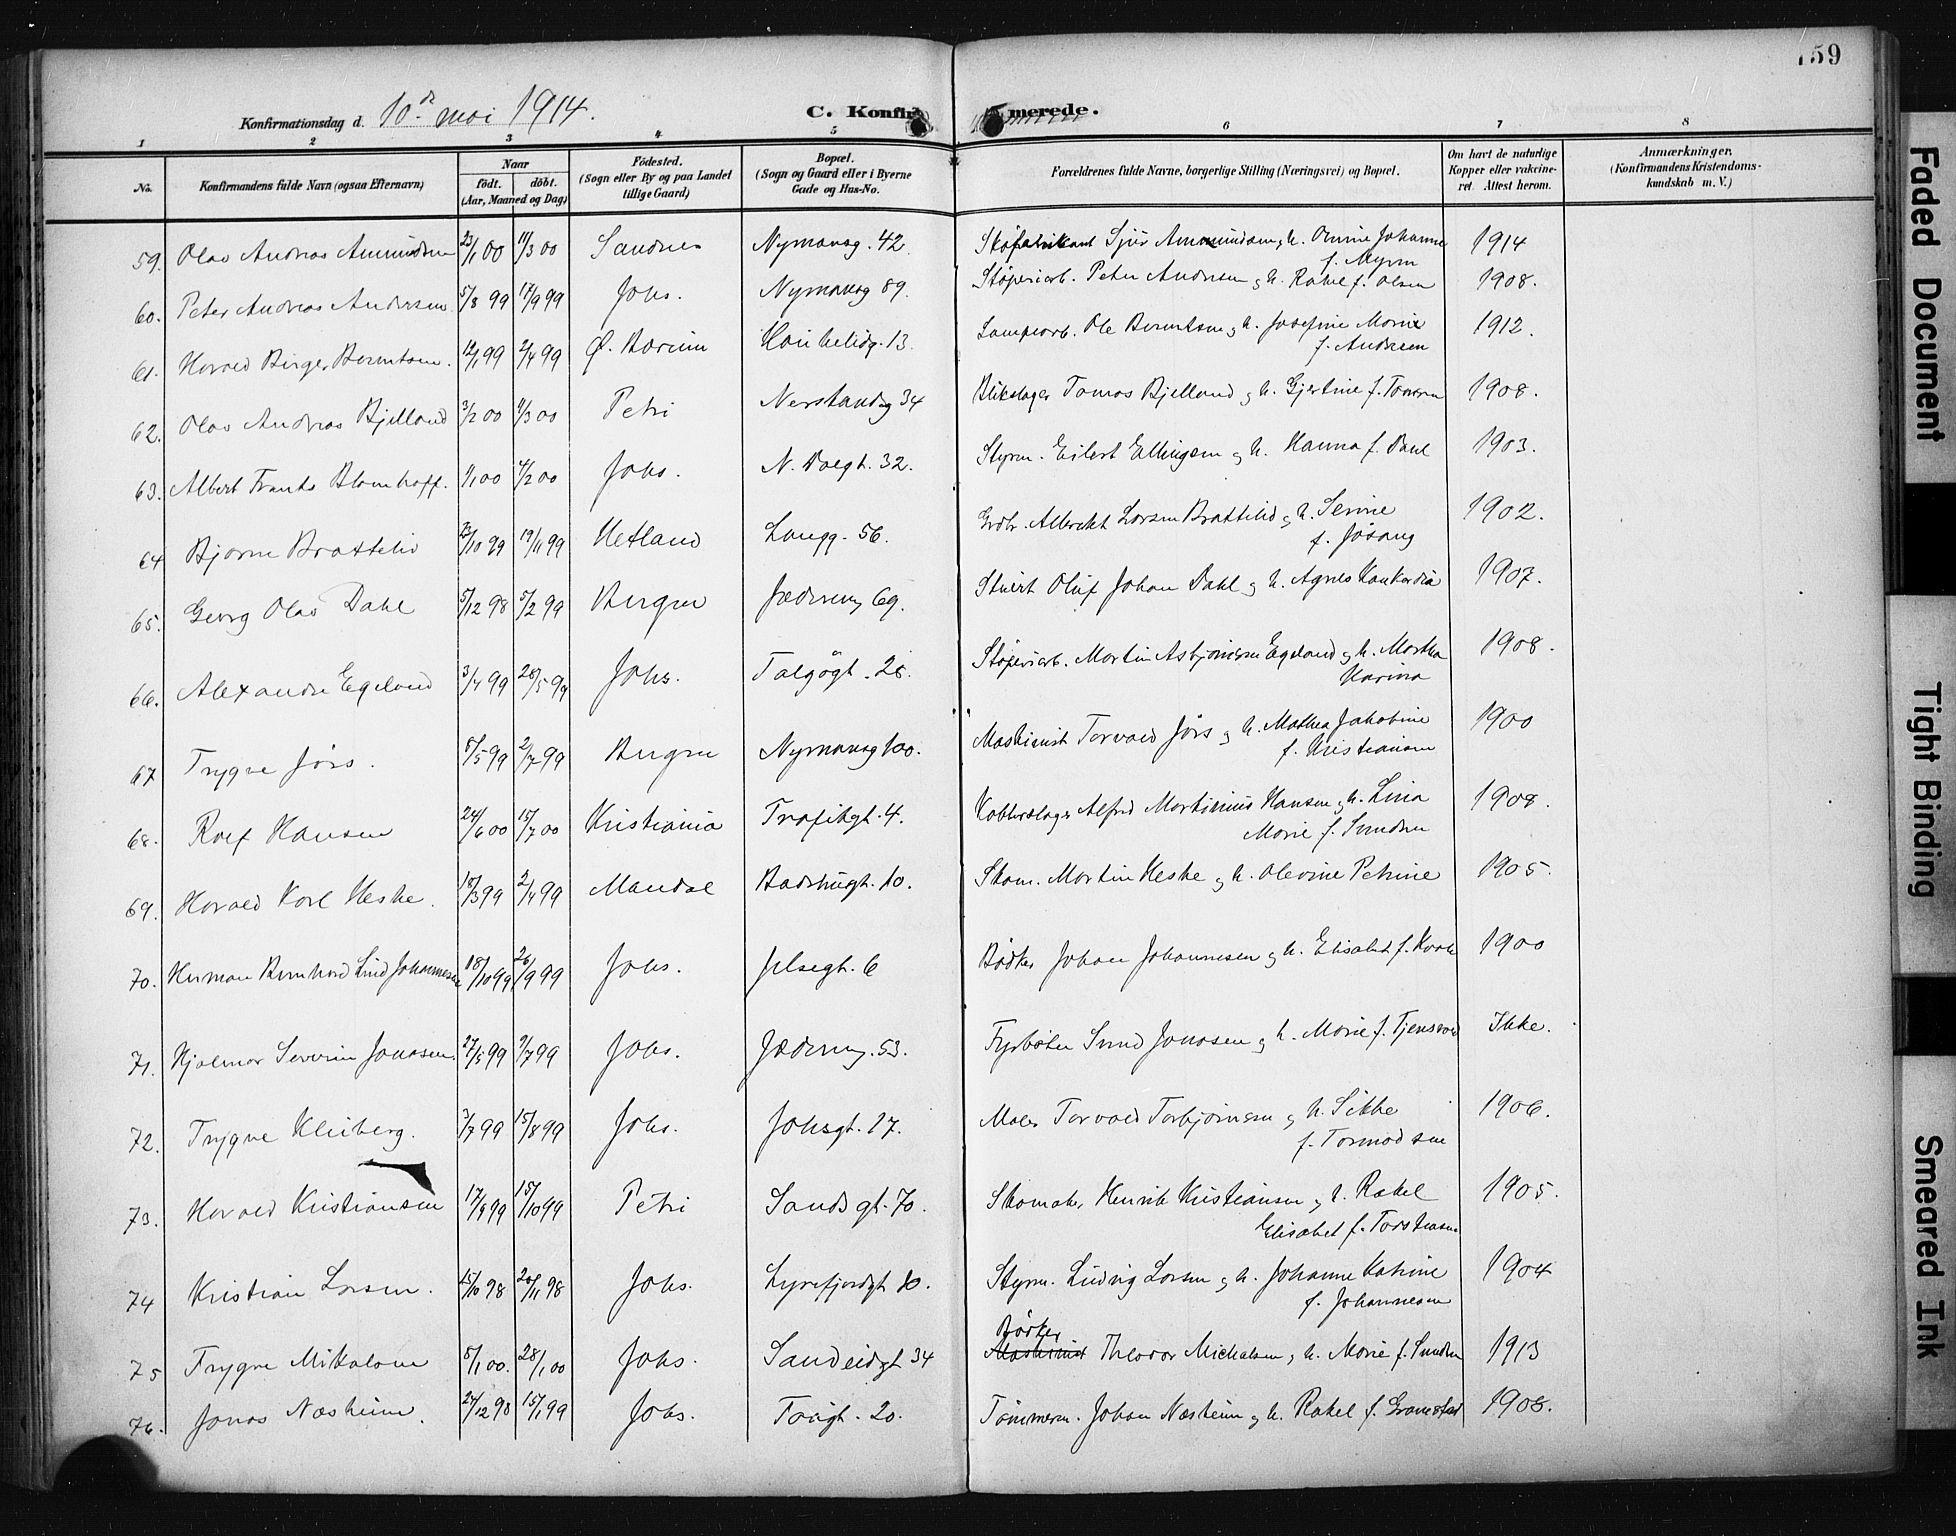 159
Konfirmationsdag d. 10de mai 1914.
C. Konfirmerede.
1 2 3 4 5 6 7 8
No. Konfirmandens fulde Navn (ogsaa Efternavn) Naar født. døbt. (Aar, Maaned og Dag) Fødested. (Sogn eller By og paa Landet tillige Gaard) Bopæl. (Sogn og Gaard eller i Byerne Gade og Hus-No. Forældrenes fulde Navne, borgerlige Stilling (Næringsvei) og Bopæl. Om havt de naturlige Kopper eller vaccineret. Attest herom. Anmærkninger. (Konfirmandens Kristendomskundskab m. V.)
59. Olav Andreas Amundsen 23/1 00 11/3 00 Sandnes Nymansg. 42. Skofabrikant Sjur Ammundsen, h. Johanne 1914
f. Myren
60. Peter Andreas Andersen 5/8 99 17/9 99 Johs. Nymansg 89. Støperiarb. Peter Andersen og h. Rakel f. Olsen 1908.
61. Harald Birger Berntsen. 12/1 99 2/4 99 Ø. Bærum 13. Ole Berntsen og h. Josefine Marie 1912.
f. Andresen
62. Olav Andreas Bjelland 3/2 00 11/3 00 Petri Nerstrandsg 34 Blikslager Tomas Bjelland og h. Gjertine f. 1908.
63. Albert Frants Blomhoff. 1/1 00 4/2 00 Johs. N. Dalgt. 32. Styrm. Eilert Ellingsen og h. Hanna f. Dahl 1903.
64 Bjarne Brattelid 23/10 99 19/11 99 Hetland Langg. 56. Albrekt Larsen Brattelid og h. Serine 1902.
f. Jøsang
65. Georg Olav Dahl 5/12 98 5/2 99 Bergen Jæderveg 69. Stuert Oluf Johan Dahl og h. Agnes Konkordia 1907.
66. Alexander Egeland 3/4 99 28/5 99 Johs. Talgøgt. 28. Støperiarb. Martin Asbjørnsen Egeland og h. Martha 1908.
Karina
67 Trygve Jörs. 5/5 99 2/7 99 Bergen Nymansg 100. Maskinist Torvald Jörs og h. Mathea Jakobine 1900
f. Kristiansen
68. Rolf Hansen 24/6 00 15/7 00 Kristiania Trafikgt. 4. Kobberslager Alfred Martinius Hansen og h. Lina 1908.
Marie f. Svendsen
69. Harald Karl Heske. 18/3 99 2/4 99 Mandal Badehusgt. 10. Skom. Martin Heske og h. Olevine Petrine 1905.
70. Herman Bernhard Lind Johannesen 18/10 99 26/9 99 Johs. Jelsegt. 6 Bødker Johan Johannesen og h. Elisabet f. 1900
71. Hjalmar Severin Jonasen. 27/5 99 9/7 99 Johs. Jæderveg. 53. Fyrbøter Svend Jonasen og h. Marie f. Tjensvold Ikke.
72. Trygve Kleiberg. 3/7 99 15/8 99 Johs. Johsgt. 17. Maler Torvald Torbjørnsen og h. Sikke 1906.
f. Tormodsen
73. Harald Kristiansen 17/9 99 15/10 99 Petri Sandsgt. 70. Skomaker Henrik Kristiansen og h. Rakel 1905.
Elisabet f. Torstensen
74 Kristian Larsen. 15/10 98 20/11 98 Johs. Lysefjordgt 10. Styrm. Ludvig Larsen og h. Johanne Katrine 1904
f. Johannesen
Bødker
75 Trygve Mikalsen 5/1 00. 28/1 00 Johs. Sandeidgt 34 Maskinist Theodor Michalsen, h. Marie f. Svendsen 1913
76. Jonas Næsheim. 27/12 98 15/1 99 Johs. Tausgt. 20. Tømmerm. Johan Næsheim og h. Rakel f. Gramstad 1908.
Faded Document
Tight Binding
Smeared Ink